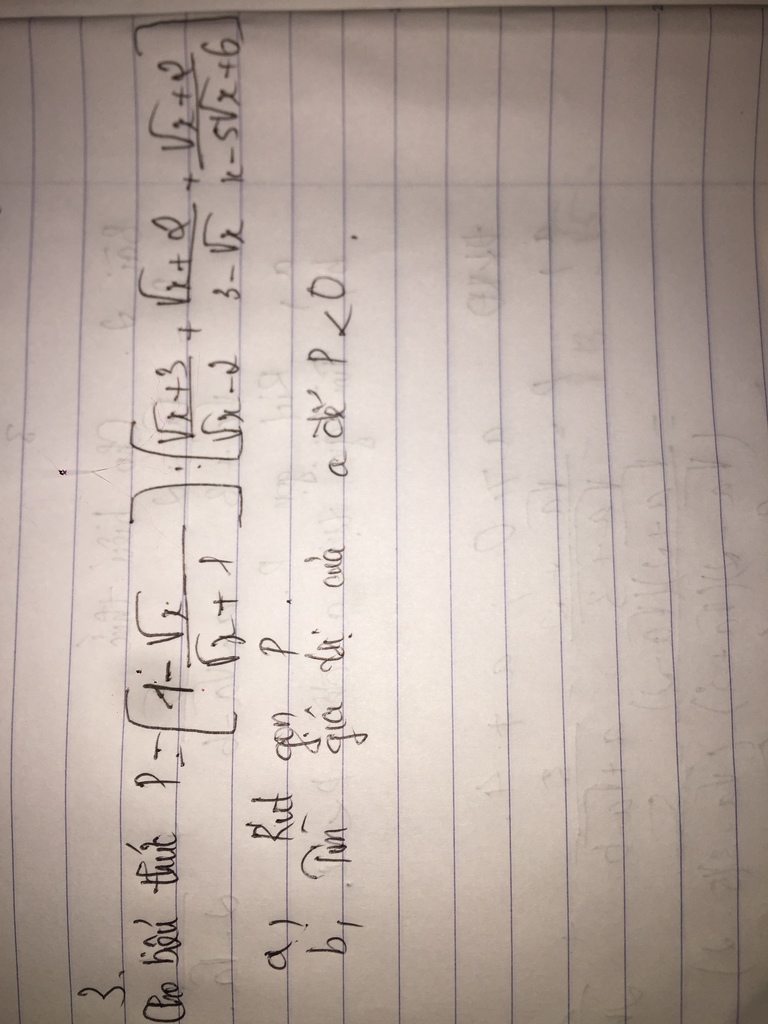 3.
Cho biểu thức P = [1 - √x / √x + 1] : [√x+3 / √x-2 + √x+2 / 3-√x + √x+2 / x-5√x+6]
a) Rút gọn P.
b, Tìm giá trị của a để P < 0.